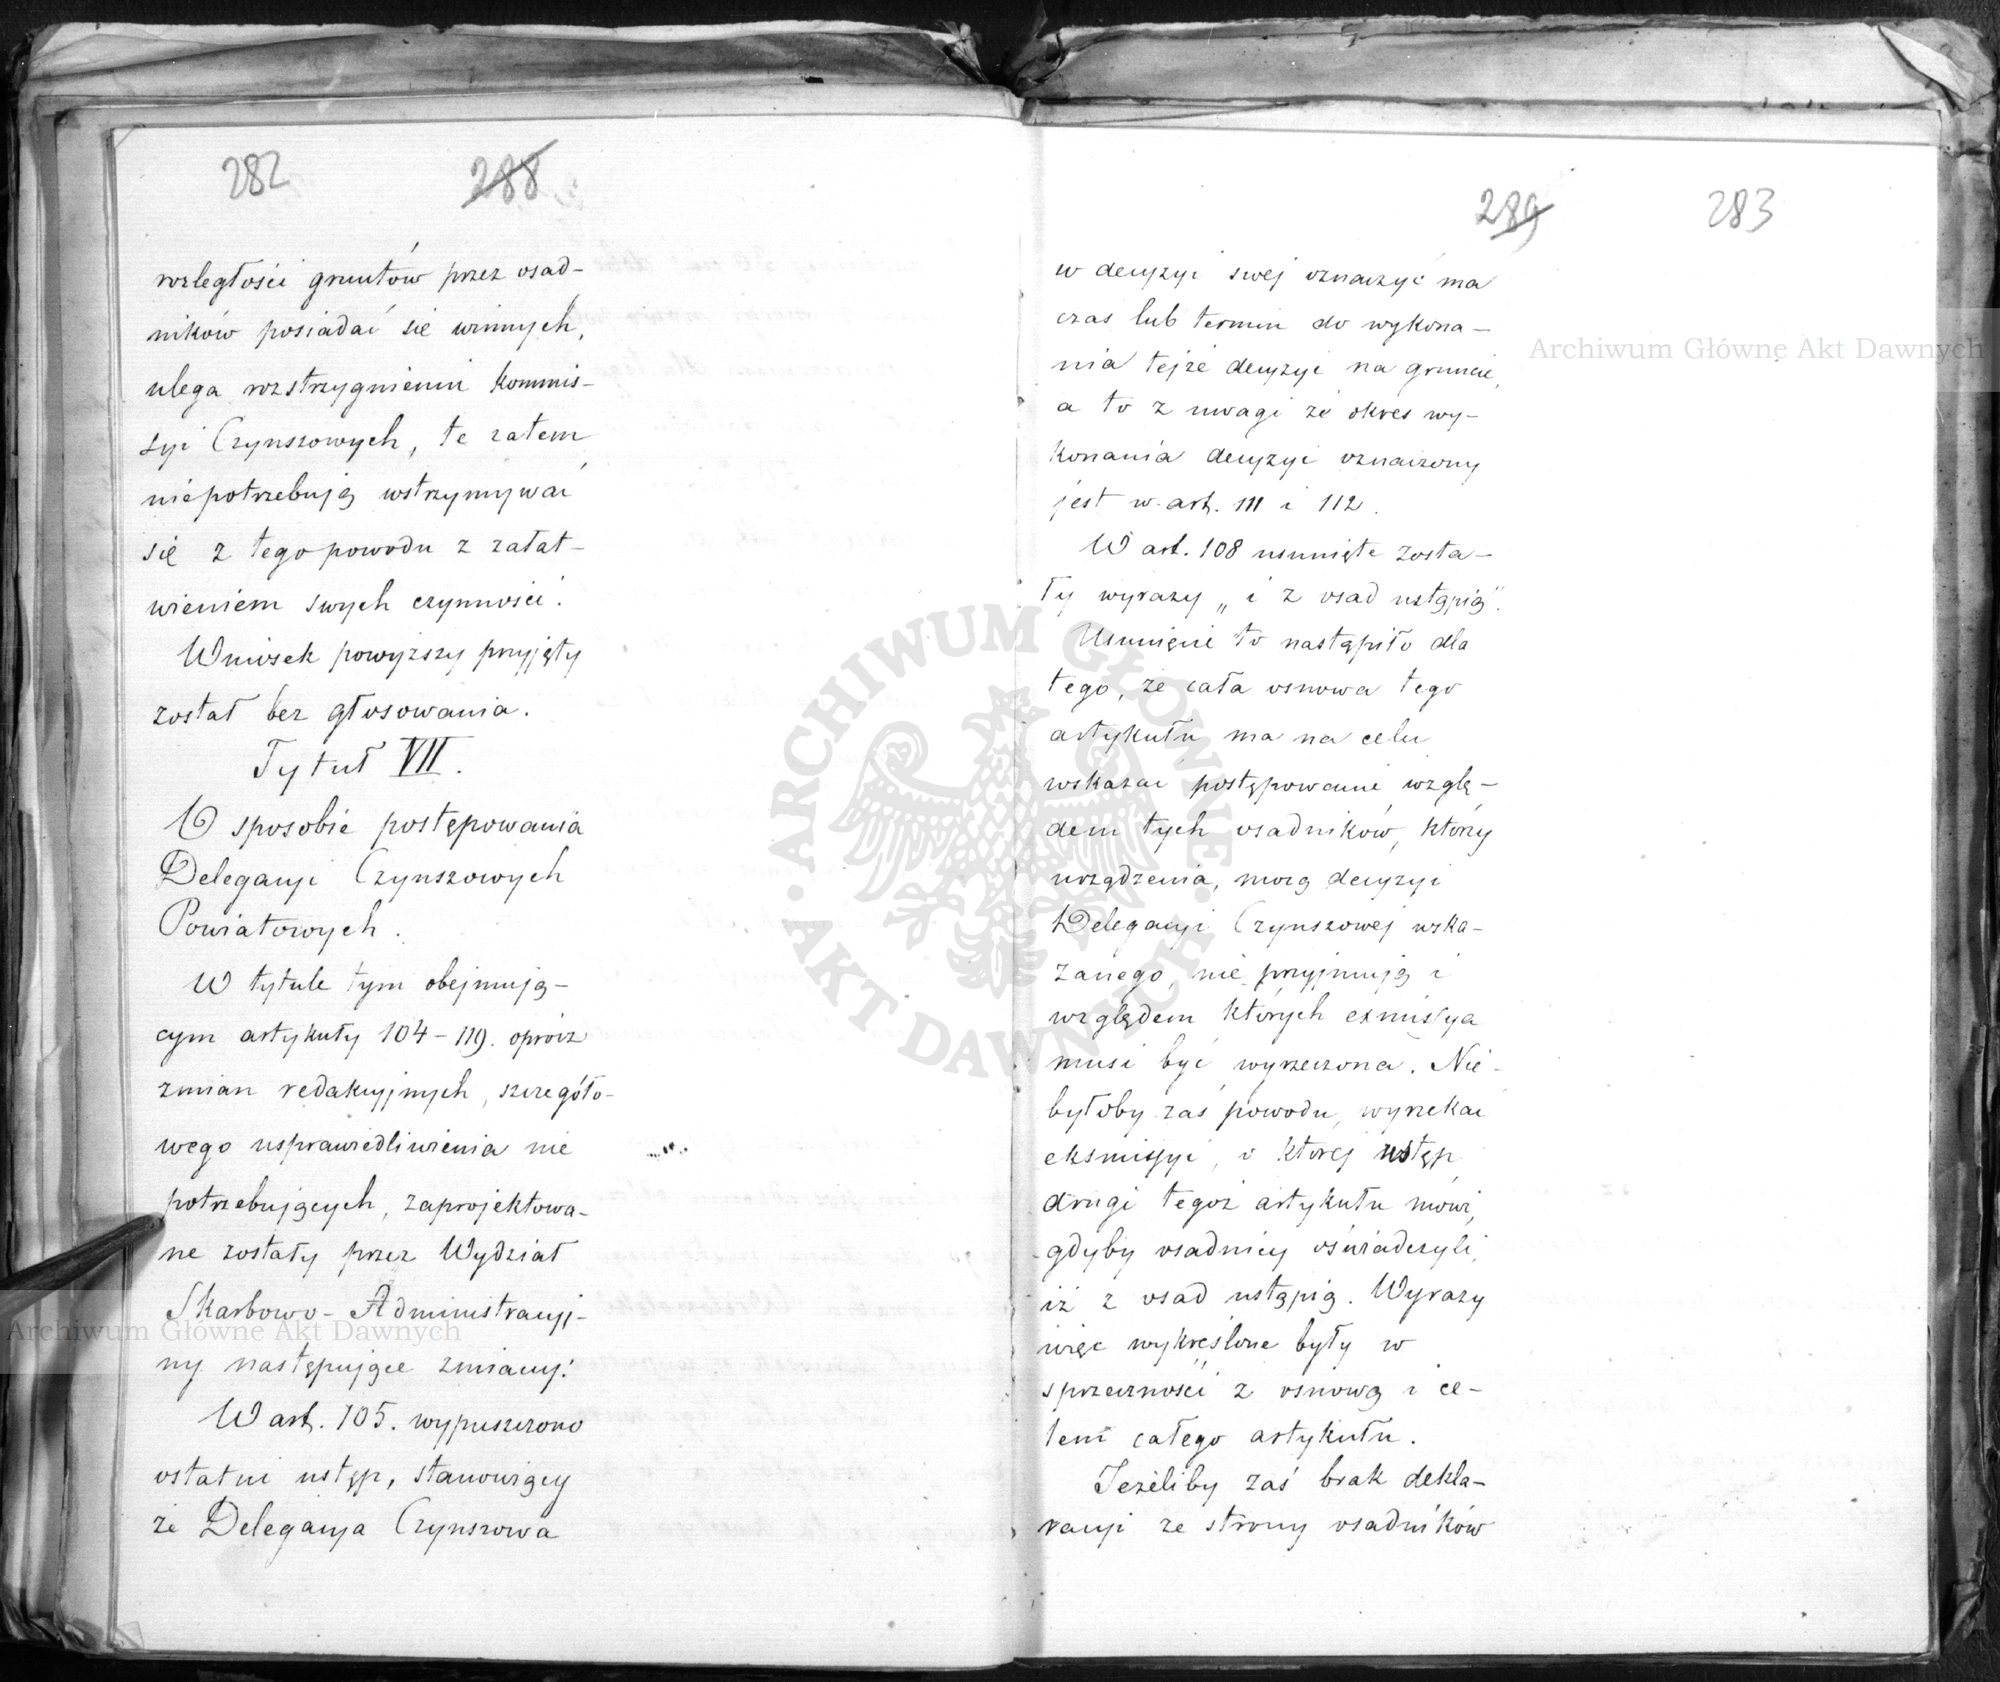 282 288
rozległości gruntów przez osad-
ników posiadać się winnych,
ulega rozstrzygnieniu kommis-
syi Czynszowych, te zatem
niepotrzebują wstrzymywać
się z tego powodu z załat-
wieniem swych czynności.
Wniosek powyższy przyjęty
został bez głosowania.
Tytuł VII.
O sposobie postępowania
Delegacyi Czynszowych
Powiatowych.
W tytule tym obejmują-
cym artykuły 104-119. oprócz
zmian redakcyjnych, szczegóło-
wego usprawiedliwienia nie
potrzebujących, zaprojektowa-
ne zostały przez Wydział
Skarbowo-Administracyj-
ny następujące zmiany:
W art. 105. wypuszczono
ostatni ustęp, stanowiący
że Delegacya Czynszowa
289 283
w decyzyi swej oznaczyć ma
czas lub termin do wykona-
nia tejże decyzyi na gruncie,
a to z uwagi że okres wy-
konania decyzyi oznaczony
jest w art. 111 i 112.
W art. 108 usunięte zosta-
ły wyrazy „i z osad ustąpią".
Usunięcie to nastąpiło dla
tego, że cała osnowa tego
artykułu ma na celu
wskazać postępowanie wzglę-
dem tych osadników, którzy
urządzenia, mocą decyzyi
Delegacyi Czynszowej wska-
zanego, nie przyjmują i
względem których exmissya
musi być wyrzeczona. Nie-
byłoby zaś powodu, wyrzekać
eksmissyi, o której ustęp
drugi tegoż artykułu mówi,
gdyby osadnicy oświadczyli,
iż z osad ustąpią. Wyrazy
więc wykreślone były w
sprzeczności z osnową i ce-
lem całego artykułu.
Jeżeliby zaś brak dekla-
racyi ze strony osadników
Archiwum Główne Akt Dawnych
Archiwum Główne Akt Dawnych
ARCHIWUM GŁÓWNE · AKT DAWNYCH ·